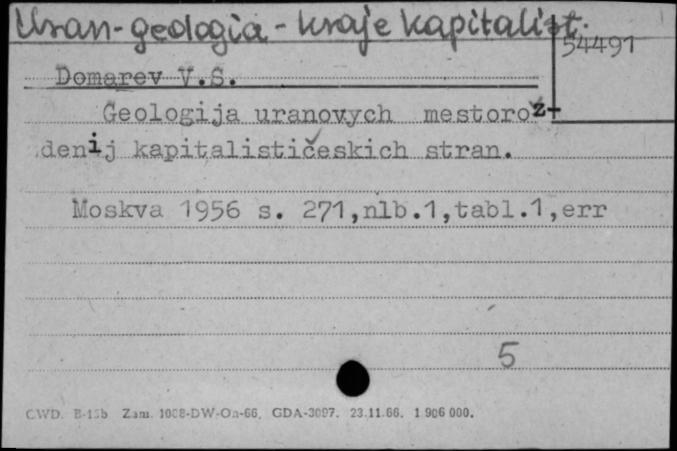 Uran-geologia - kraje kapitalist.
54491
Domarev V.S.
Geologija uranovych mestorož-
denij kapitalističeskich stran.
Moskva 1956 s. 271,nlb.1,tabl.1,err
5
CWD. B-15b Zam. 1008-DW-On-66. GDA-3097. 23.11.66. 1 906 000.